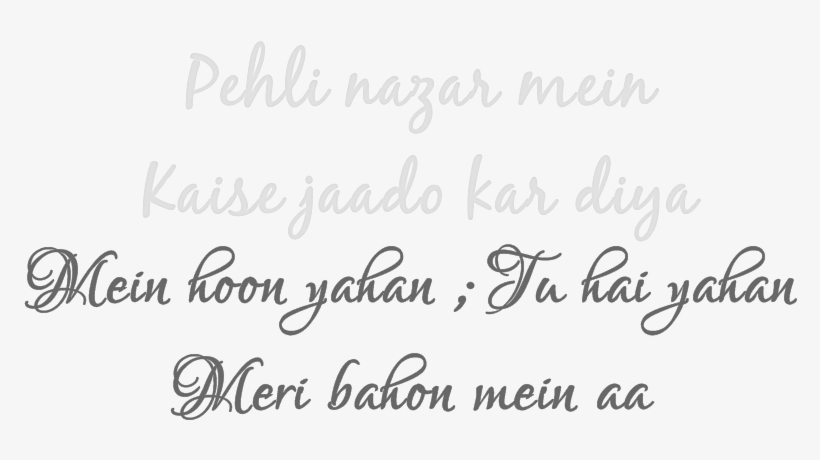 Pehli nazar mein
Kaise jaado kar diya
Mein hoon yahan ; Tu hai yahan
Meri bahon mein aa